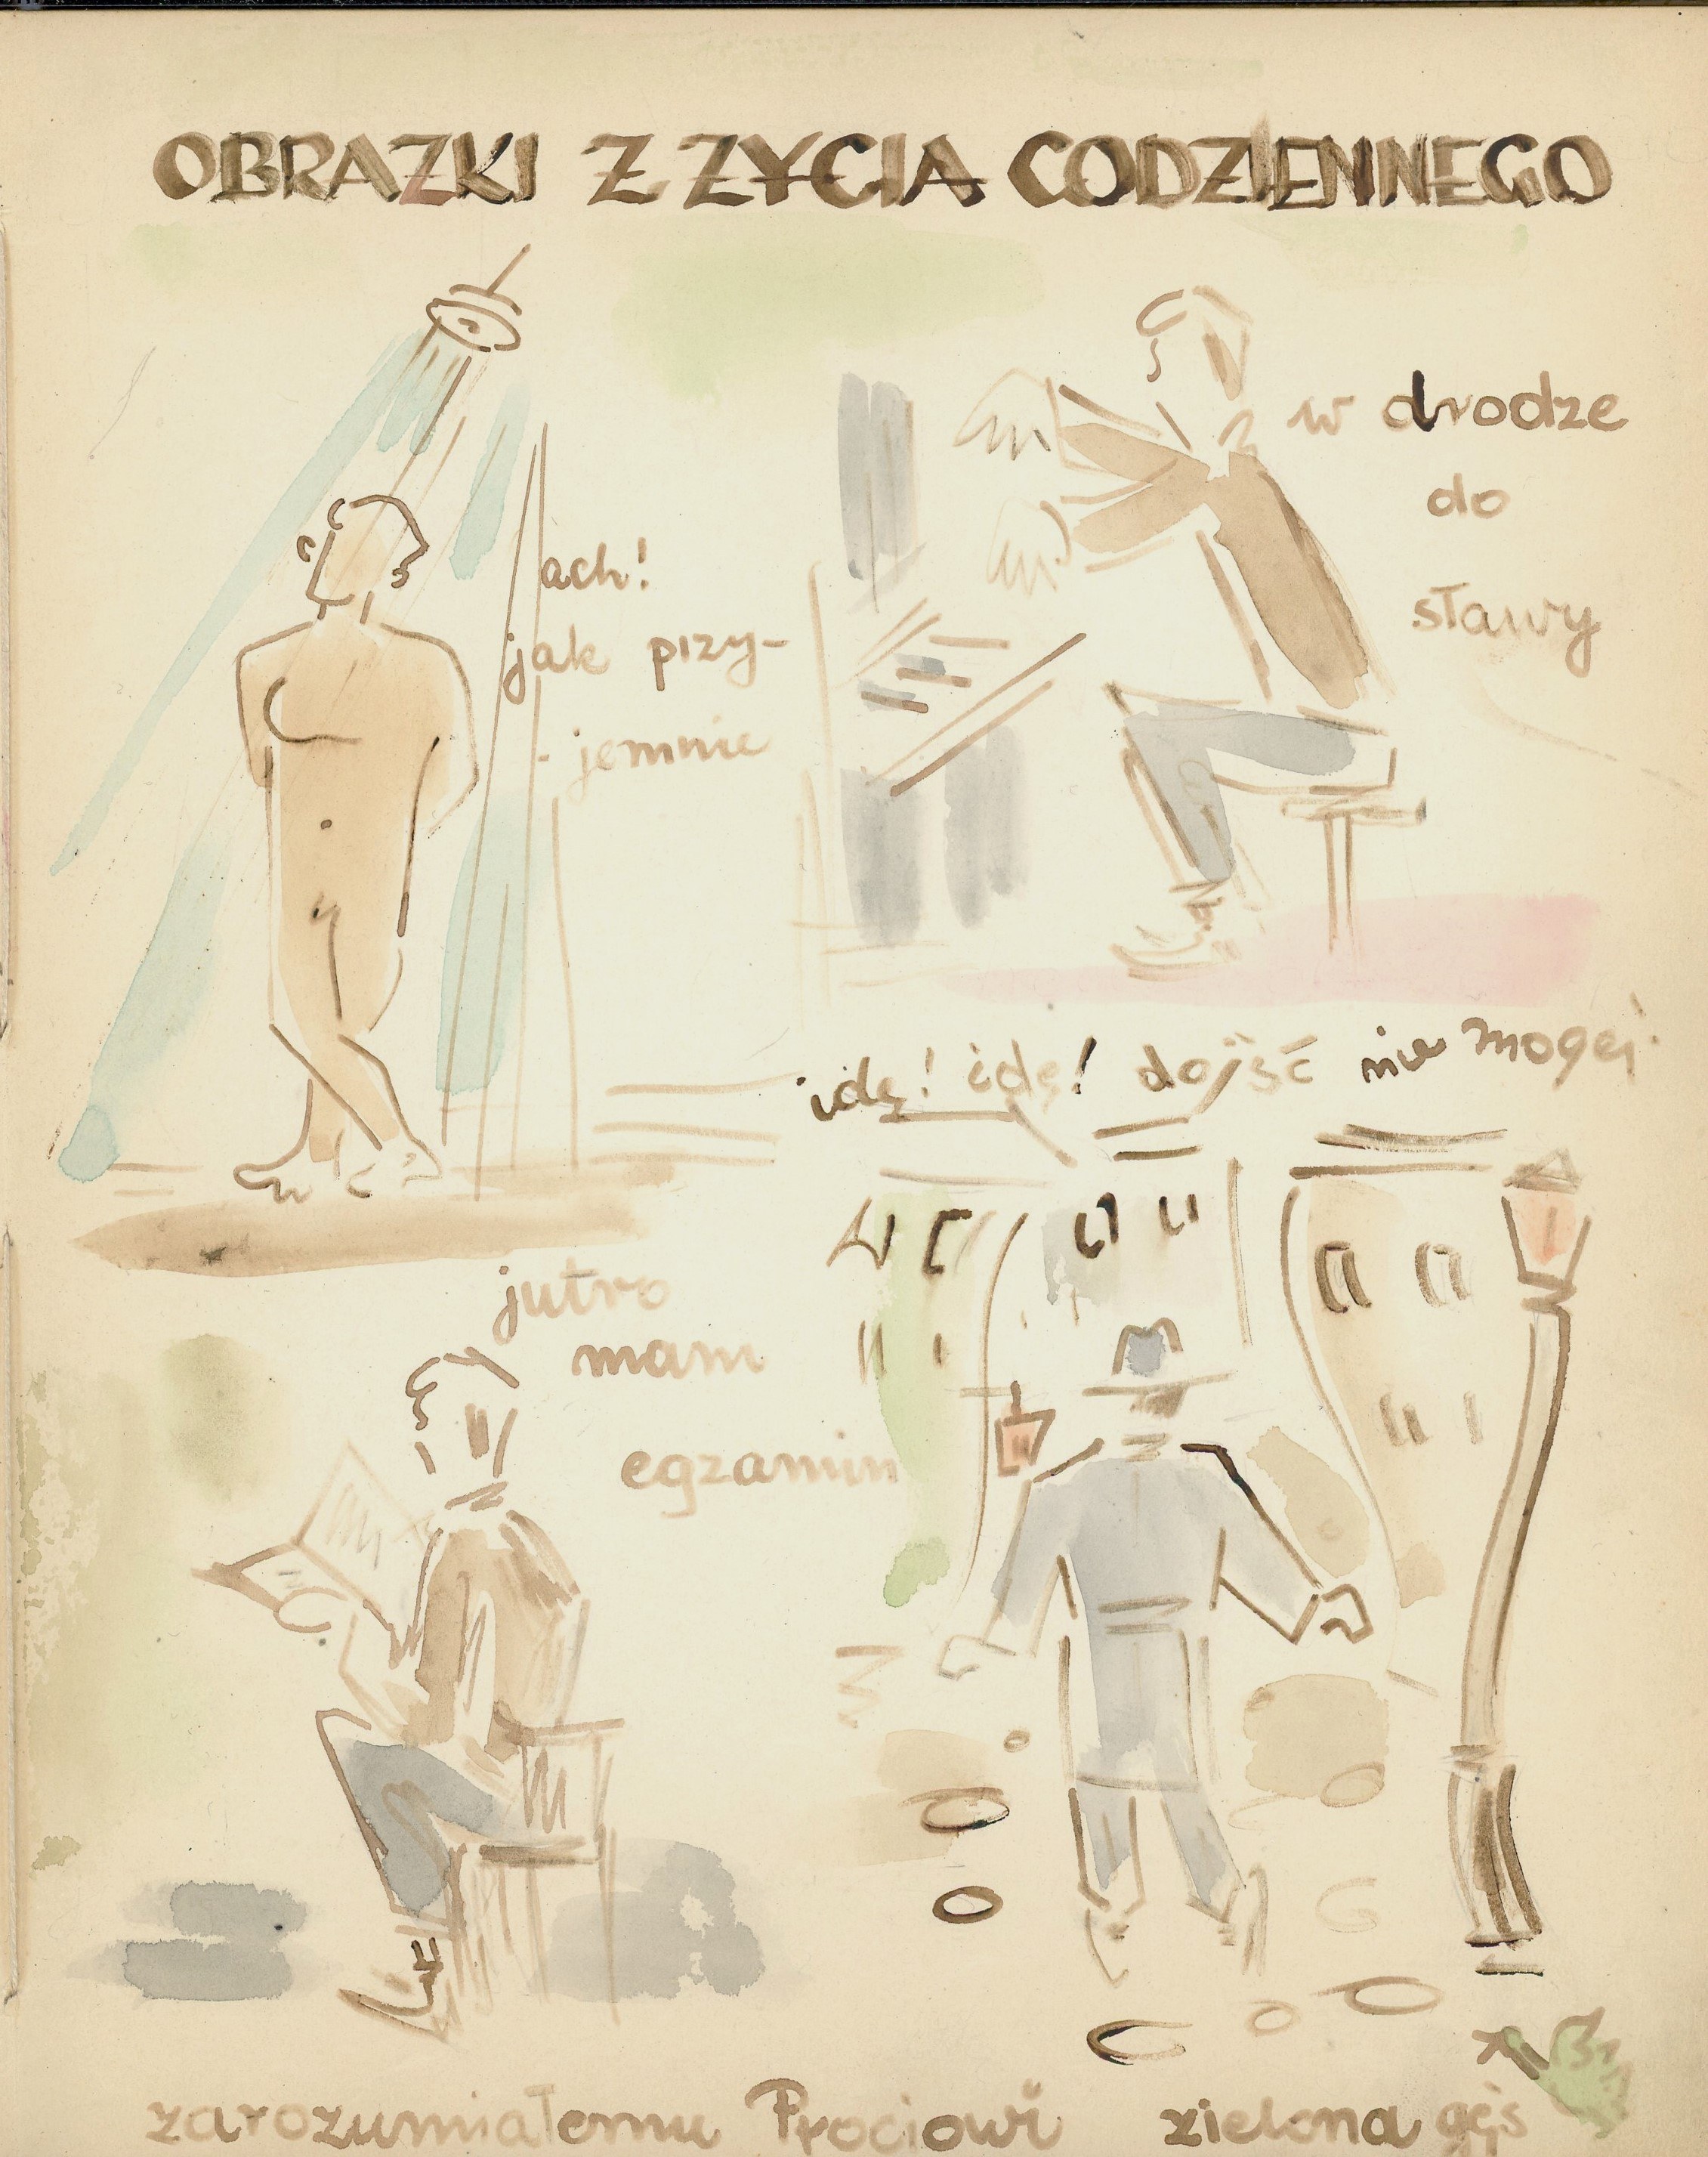 OBRAZKI Z ŻYCIA CODZIENNEGO
ach!
jak przy-
-jemnie
w drodze
do
sławy
jutro
mam
egzamin
idę! idę! dojść nie mogę!
zarozumiałemu Prociowi zielona gęś